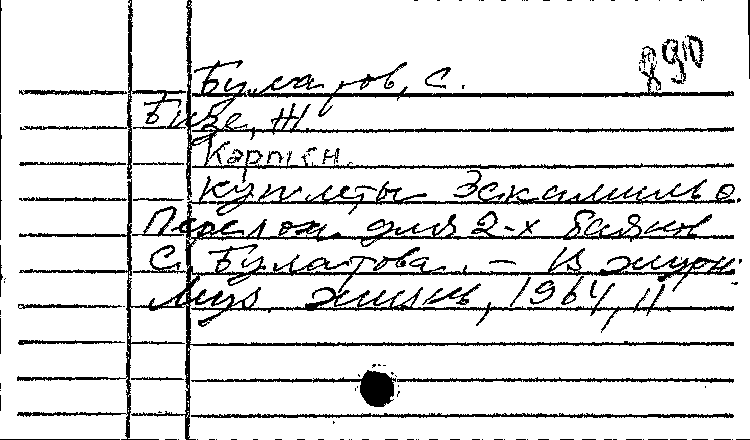 890
Булатов, С.
Бизе, Ж.
Кармен.
Куплеты Эскамильо.
Перелож. для 2-х баянов
С. Булатова. – В журн:
Муз. жизнь, 1964, 11